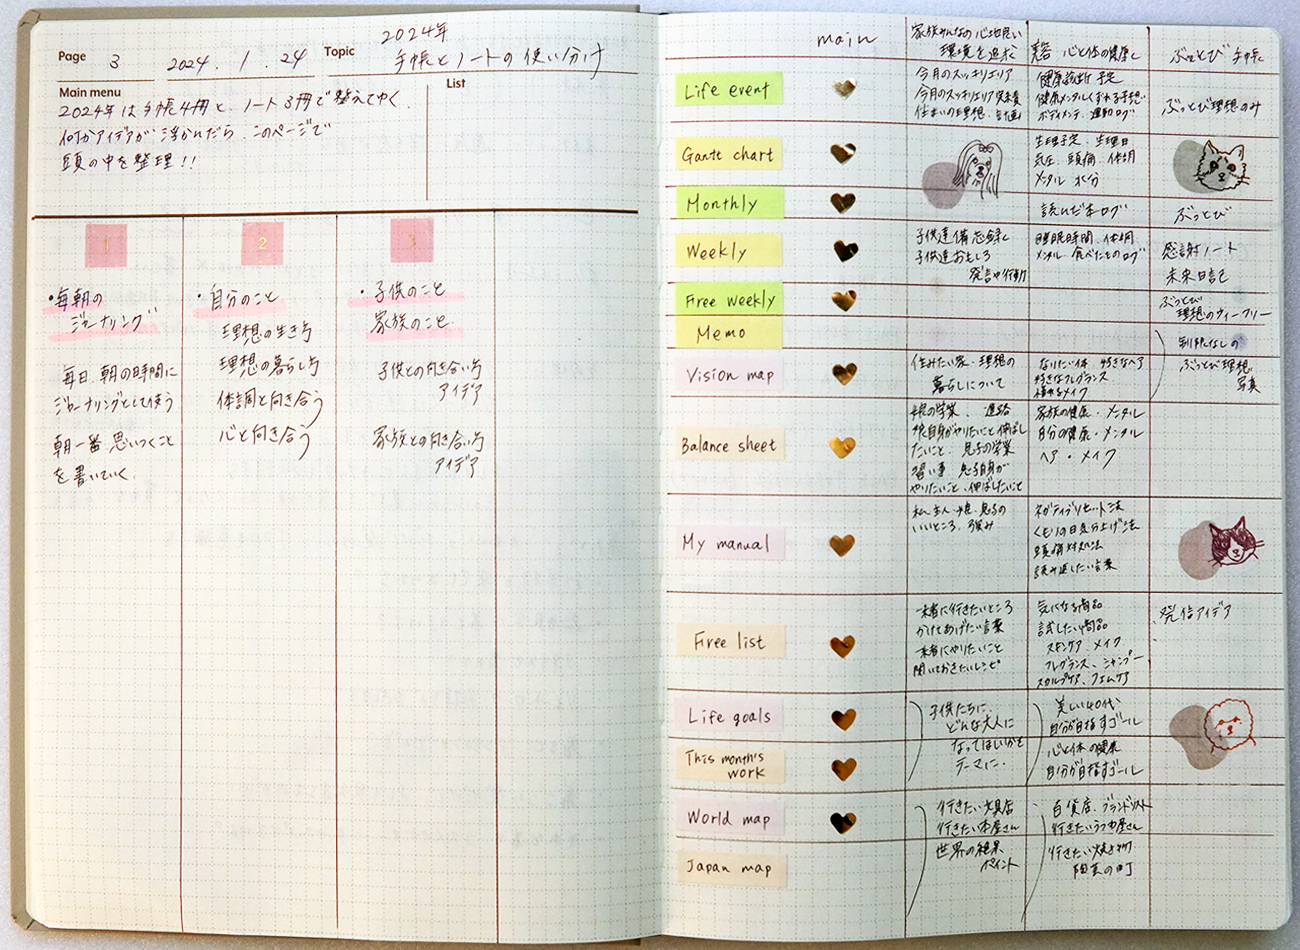 Page 3
2024. 1. 24
Topic
2024年
手帳とノートの使い分け
Main menu
2024年は手帳4冊と、ノート3冊で整えてゆく。
何かアイデアが浮かんだら、このページで
頭の中を整理!!
List
1
・毎朝の
ジャーナリング
毎日、朝の時間に
ジャーナリングとして使う
朝一番 思いつくこと
を書いていく。
2
・自分のこと
理想の生き方
理想の暮らし方
体調と向き合う
心と向き合う
3
・子供のこと
家族のこと
子供との向き合い方
アイデア
家族との向き合い方
アイデア
main
家族みんなの心地良い
環境を追求
心と体の健康
ぶっとび手帳
Life event
今月のスッキリエリア
今月のスッキリエリア
住まいの理想・計画
健康診断 予定
健康メンタルくずれる予想
ボディメンテ、運動ログ
ぶっとび理想のみ
Gantt chart
生理予定、生理日
気圧、頭痛、体調
メンタル 水分
Monthly
読んだ本ログ
ぶっとび
Weekly
子供達備忘録
子供達おもしろ
発言や行動
睡眠時間、体調
メンタル、食べたものログ
感謝ノート
未来日記
Free weekly
ぶっとび
理想のウィークリー
Memo
制限なしの
Vision map
住みたい家・理想の
暮らしについて
なりたい体 好きなヘア
好きなフレグランス
メイク
ぶっとび理想
写真
Balance sheet
娘の学業、進路
娘自身がやりたいこと伸ばし
たいこと、息子の学業
習い事、息子自身が
やりたいこと、伸ばしたいこと
家族の健康・メンタル
自分の健康・メンタル
ヘア・メイク
My manual
私、主人、娘、息子の
いいところ、強み
ネガティブリセット法
くもりの日気分上げ法
頭痛対処法
読み返したい言葉
Free list
一緒に行きたいところ
かけてあげたい言葉
一緒にやりたいこと
聞いておきたいレシピ
気になる商品
試したい商品
スキンケア メイク
フレグランス、シャンプー
スカルプケア、フェムケア
発信アイデア
Life goals
子供たちに、
どんな大人に
なってほしいかを
テーマに・
美しい40代
自分が目指すゴール
This month's
work
心と体の健康
自分が目指すゴール
World map
行きたい文具店
行きたい本屋さん
百貨店、ブランドリスト
行きたいうつわ屋さん
Japan map
世界の絶景
ポイント
行きたい焼き物
陶芸の町